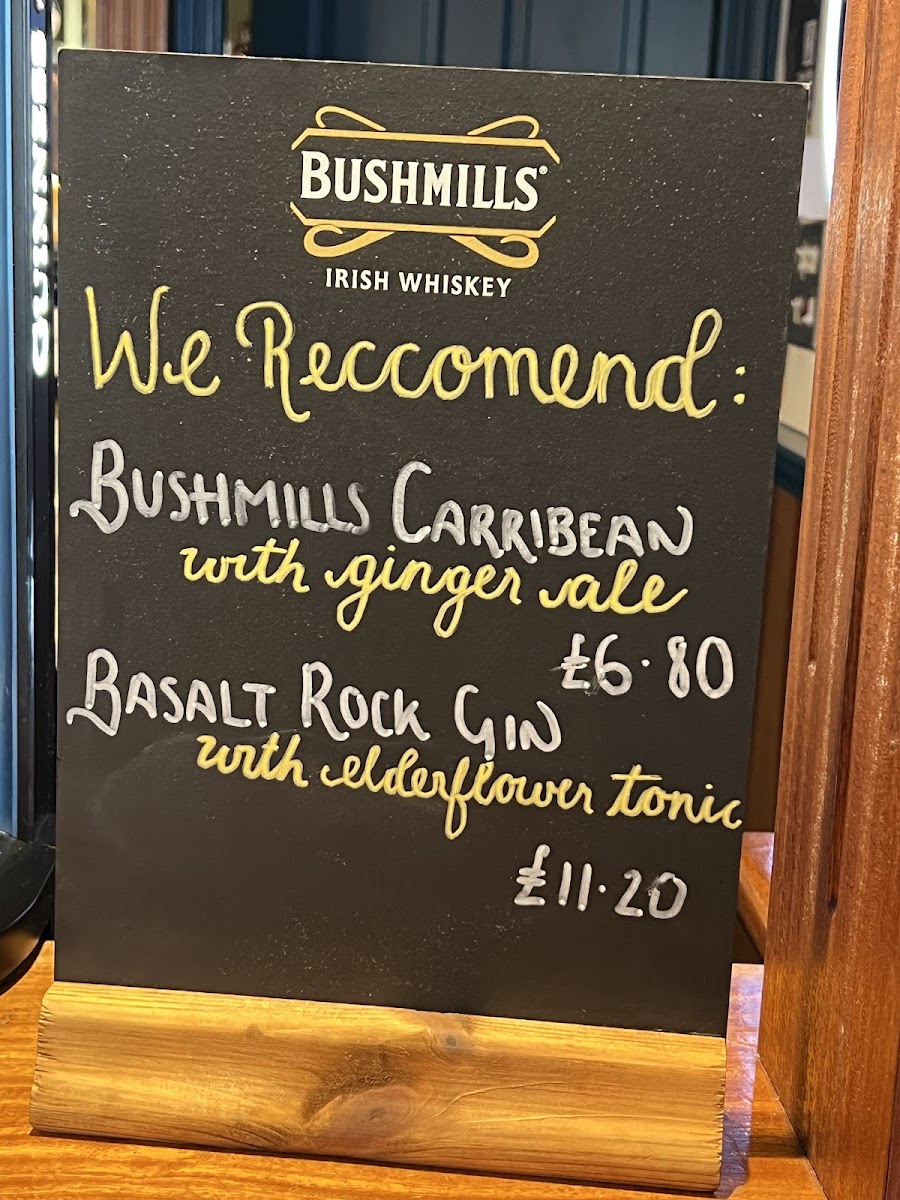 BUSHMILLS®
IRISH WHISKEY
We Reccomend:
BUSHMILLS CARRIBEAN
with ginger ale
£6.80
BASALT ROCK GIN
with elderflower tonic
£11.20